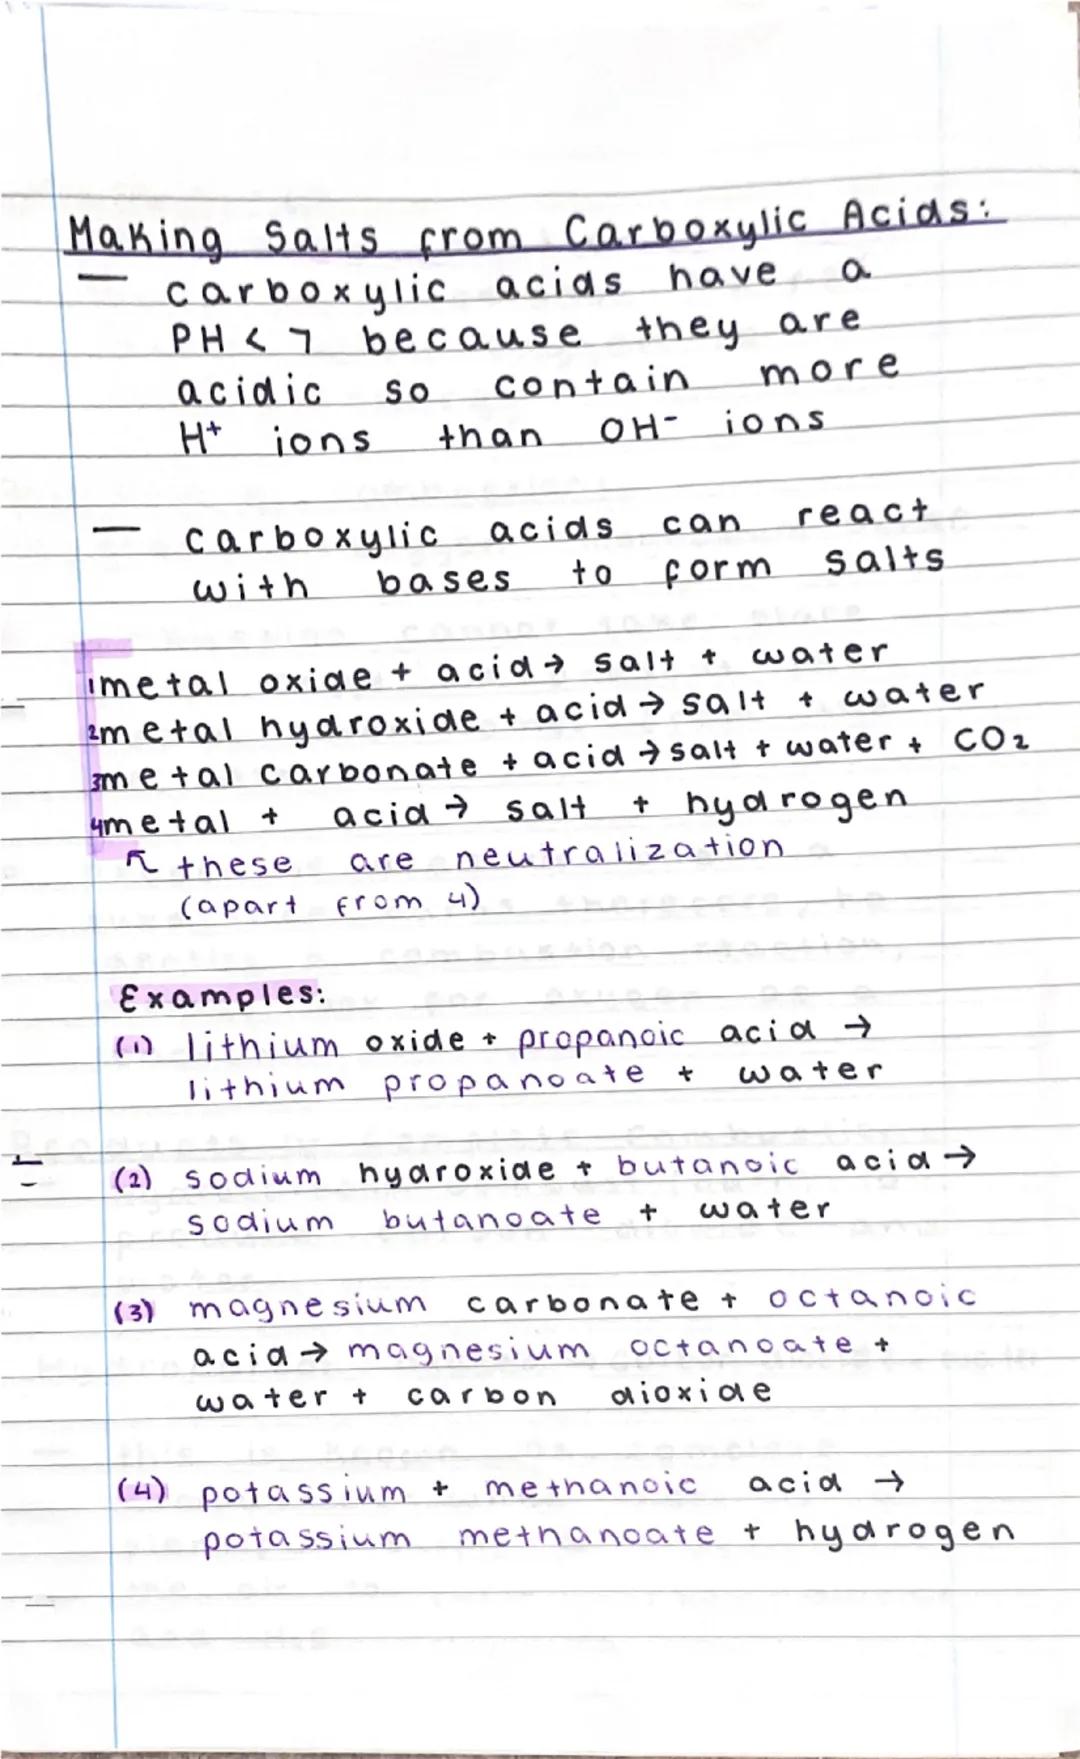 Making Salts from Carboxylic Acids:
— carboxylic acids have a
PH < 7 because they are
acidic so contain more
H+ ions than OH- ions
— carboxylic acids can react
with bases to form salts
1metal oxide + acid → salt + water
2metal hydroxide + acid → salt + water
3metal carbonate + acid → salt + water + CO2
4metal + acid → salt + hydrogen
↖ these are neutralization
(apart from 4)
Examples:
(1) lithium oxide + propanoic acid →
lithium propanoate + water
(2) sodium hydroxide + butanoic acid →
sodium butanoate + water
(3) magnesium carbonate + octanoic
acid → magnesium octanoate +
water + carbon dioxide
(4) potassium + methanoic acid →
potassium methanoate + hydrogen